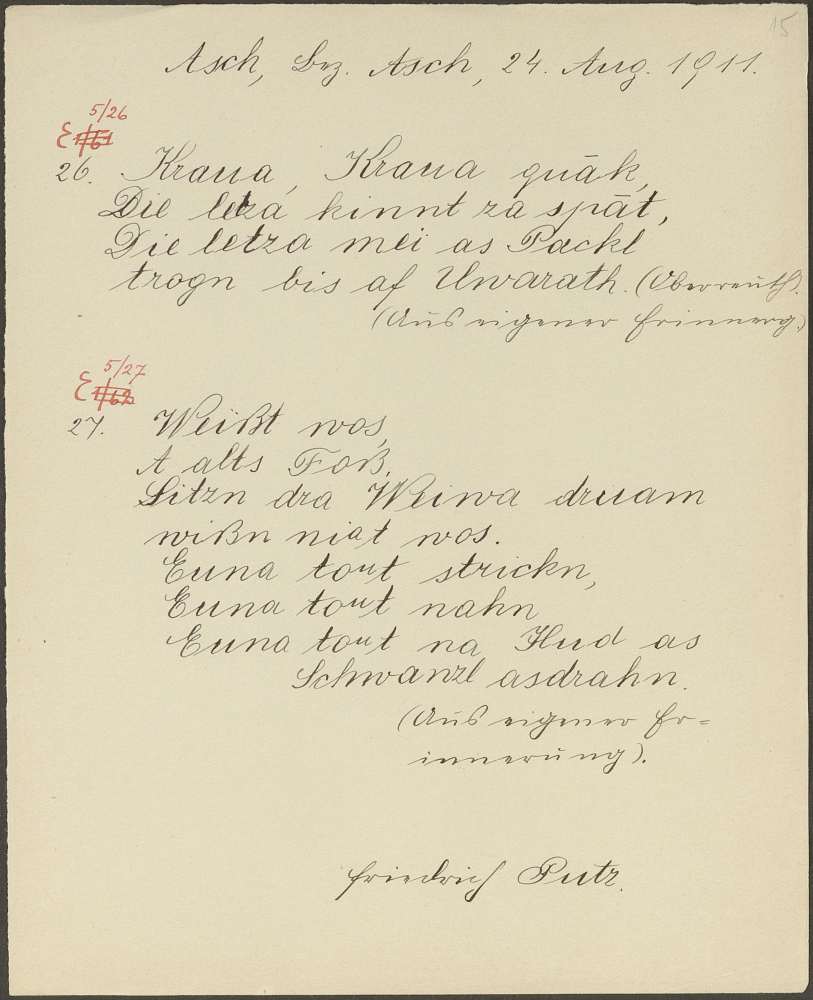 15
Asch, Bez. Asch, 24. Aug. 1911.
5/26
E
26. Kraua, Kraua quāk,
Die letza kinnt za spāt,
Die letza mei as Packl
trogn bis af Uwarath. (Oberreuth).
(Aus eigener Erinnerg.)
5/27
E
27. Weißt wos,
A alts Foß,
Sitzn dra Weiwa druam
wißn niat wos.
Euna tout strickn,
Euna tout nahn
Euna tout na Hud as
Schwanzl asdrahn.
(Aus eigener Er=
innerung).
Friedrich Putz.